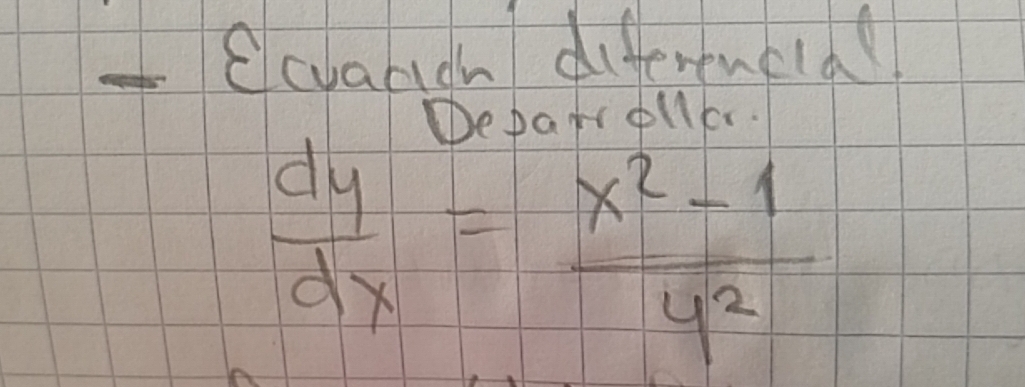 - Ecuación diferencial
Desarrollar.
dy/dx = x² - 1 / y²